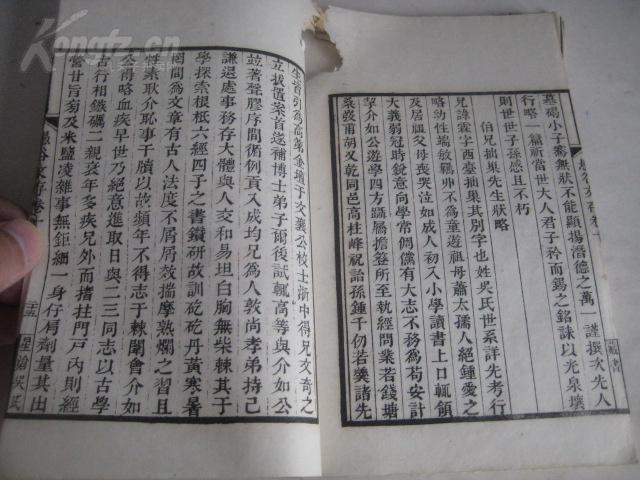 墓碣小子騫無狀不能顯揚潛德之萬一謹撰次先人
行略一篇祈當世大人君子矜而錫之銘誄以光泉壤
則世世子孫感且不朽
伯兄拙巢先生狀略
兄諱霖字西臺拙巢其別字也姓吳氏世系詳先考行
略幼性端敏羈丱不為童遊祖母蕭太孺人絕鍾愛之
及居祖父母喪哭泣如成人初入小學讀書上口輒領
大義弱冠時銳意向學常倜儻有大志不務為苟安計
挈介如公遊學四方躡屩擔簦所至執經問業若錢塘
桑弢甫胡又乾同邑高桂峰祝詒孫鍾千仞若樊諸先
生皆列為高第余壇于文襄公校士浙中得兄文奇之
立拔置案首迄補博士弟子爾後試輒高等與介如公
竝著聲膠序間循例貢入成均兄為人敦尚孝弟持己
謙退處事務存大體與人交和易坦白胸無柴棘其于
學探索根柢六經四子之書鑽研故訓矻矻丹黃寒暑
罔間為文章有古人法度不屑屑效揣摩孰爛之習且
性素耿介恥事干牘以故頻年不得志于棘闈會介如
公得咯血疾早世乃絕意進取日與二三同志以古學
古行相鏃礪二親衰年多疾兄外而搘拄門戸內則經
營甘旨芻及米鹽凌雜事無鉅細一身仔肩劑量其出
愚谷文存卷十
拜經樓吳氏
藏書
Kongfz.cn